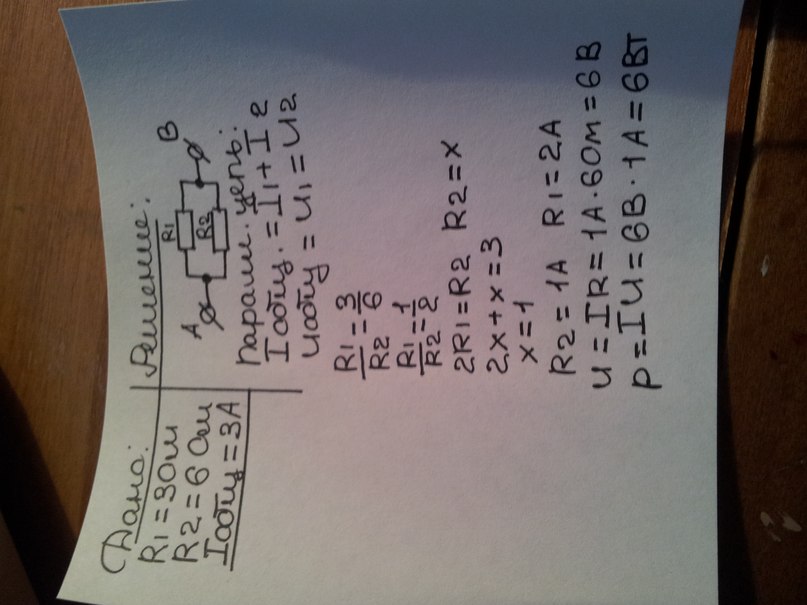 Дано:
R1=3Ом
R2=6 Ом
Iобщ=3А
Решение:
A R1 R2 B
парал. цепь:
Iобщ.=I1+I2
Uобщ=U1=U2
R1/R2=3/6
R1/R2=1/2
2R1=R2 R2=x
2x+x=3
x=1
R2=1A R1=2A
U=IR=1A·6Ом=6В
P=IU=6В·1А=6Вт